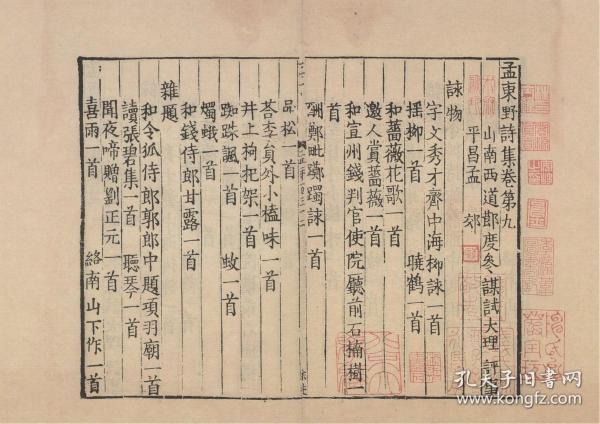 孟東野詩集卷第九
山南西道節度參謀試大理評事
平昌孟郊
詠物
宇文秀才齋中海柳詠一首
搖柳一首 曉鶴一首
和薔薇花歌一首
邀人賞薔薇一首
和宣州錢判官使院廳前石楠樹一
首
酬鄭毗躑躅詠一首
品松一首
荅李員外小榼味一首
井上枸杞架一首
蜘蛛諷一首 蚊一首
燭蛾一首
和錢侍郎甘露一首
雜題
和令狐侍郎郭郎中題項羽廟一首
讀張碧集一首 聽琴一首
聞夜啼贈劉正元一首
喜雨一首 終南山下作一首
孔夫子旧书网
kongfz.com